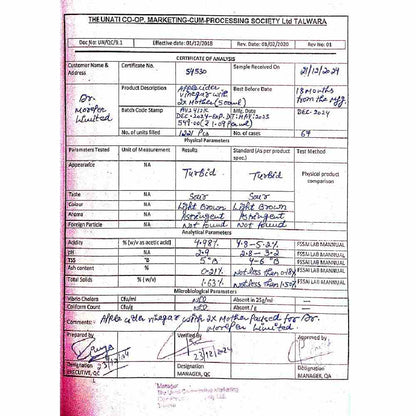 THE UNATI CO-OP. MARKETING-CUM-PROCESSING SOCIETY Ltd TALWARA
Doc No: UA/QC/9.1 Effective date: 01/12/2018 Rev. Date: 08/02/2020 Rev No: 01
CERTIFICATE OF ANALYSIS
Customer Name & Address Certificate No. 54530 Sample Received On 21/12/2024
Dr. Morepen Limited
Product Description Apple cider vinegar with 2x Mother (500ml) Best Before Date 18 Months from the mfg.
Batch Code Stamp Mfg. Date DEC-2024
No. of units filled 1221 Pcs No. of cases
Physical Parameters
Parameters Tested Unit of Measurement Results Standard (As per product spec.) Test Method
Appearance NA Turbid Turbid Physical product comparison
Taste NA Sour Sour
Colour NA Light Brown Light Brown
Aroma NA Astringent Astringent
Foreign Particle NA Not found Not found
Analytical Parameters
Acidity % (w/v as acetic acid) 4.98% 4.8-5.2% FSSAI LAB MANNUAL
pH NA 2.9 2.8-3.2 FSSAI LAB MANNUAL
TSS °B 5°B 4-6°B FSSAI LAB MANNUAL
Ash content % 0.21% Not less than 0.18% FSSAI LAB MANNUAL
Total Solids % (w/v) 1.63% Not less than 1.50% FSSAI LAB MANNUAL
Microbiological Parameters
Vibrio Cholera Cfu/ml Absent in 25g/ml
Coliform Count Cfu/ml Absent / g
Comments: Apple cider vinegar with 2x Mother Packed for Dr. Morepen Limited.
Prepared by Verified by Approved by
23/12/24 23/12/2024
Designation Designation Designation
EXECUTIVE, QC MANAGER, QC MANAGER, QA
Manager
The Unati Co-op Marketing